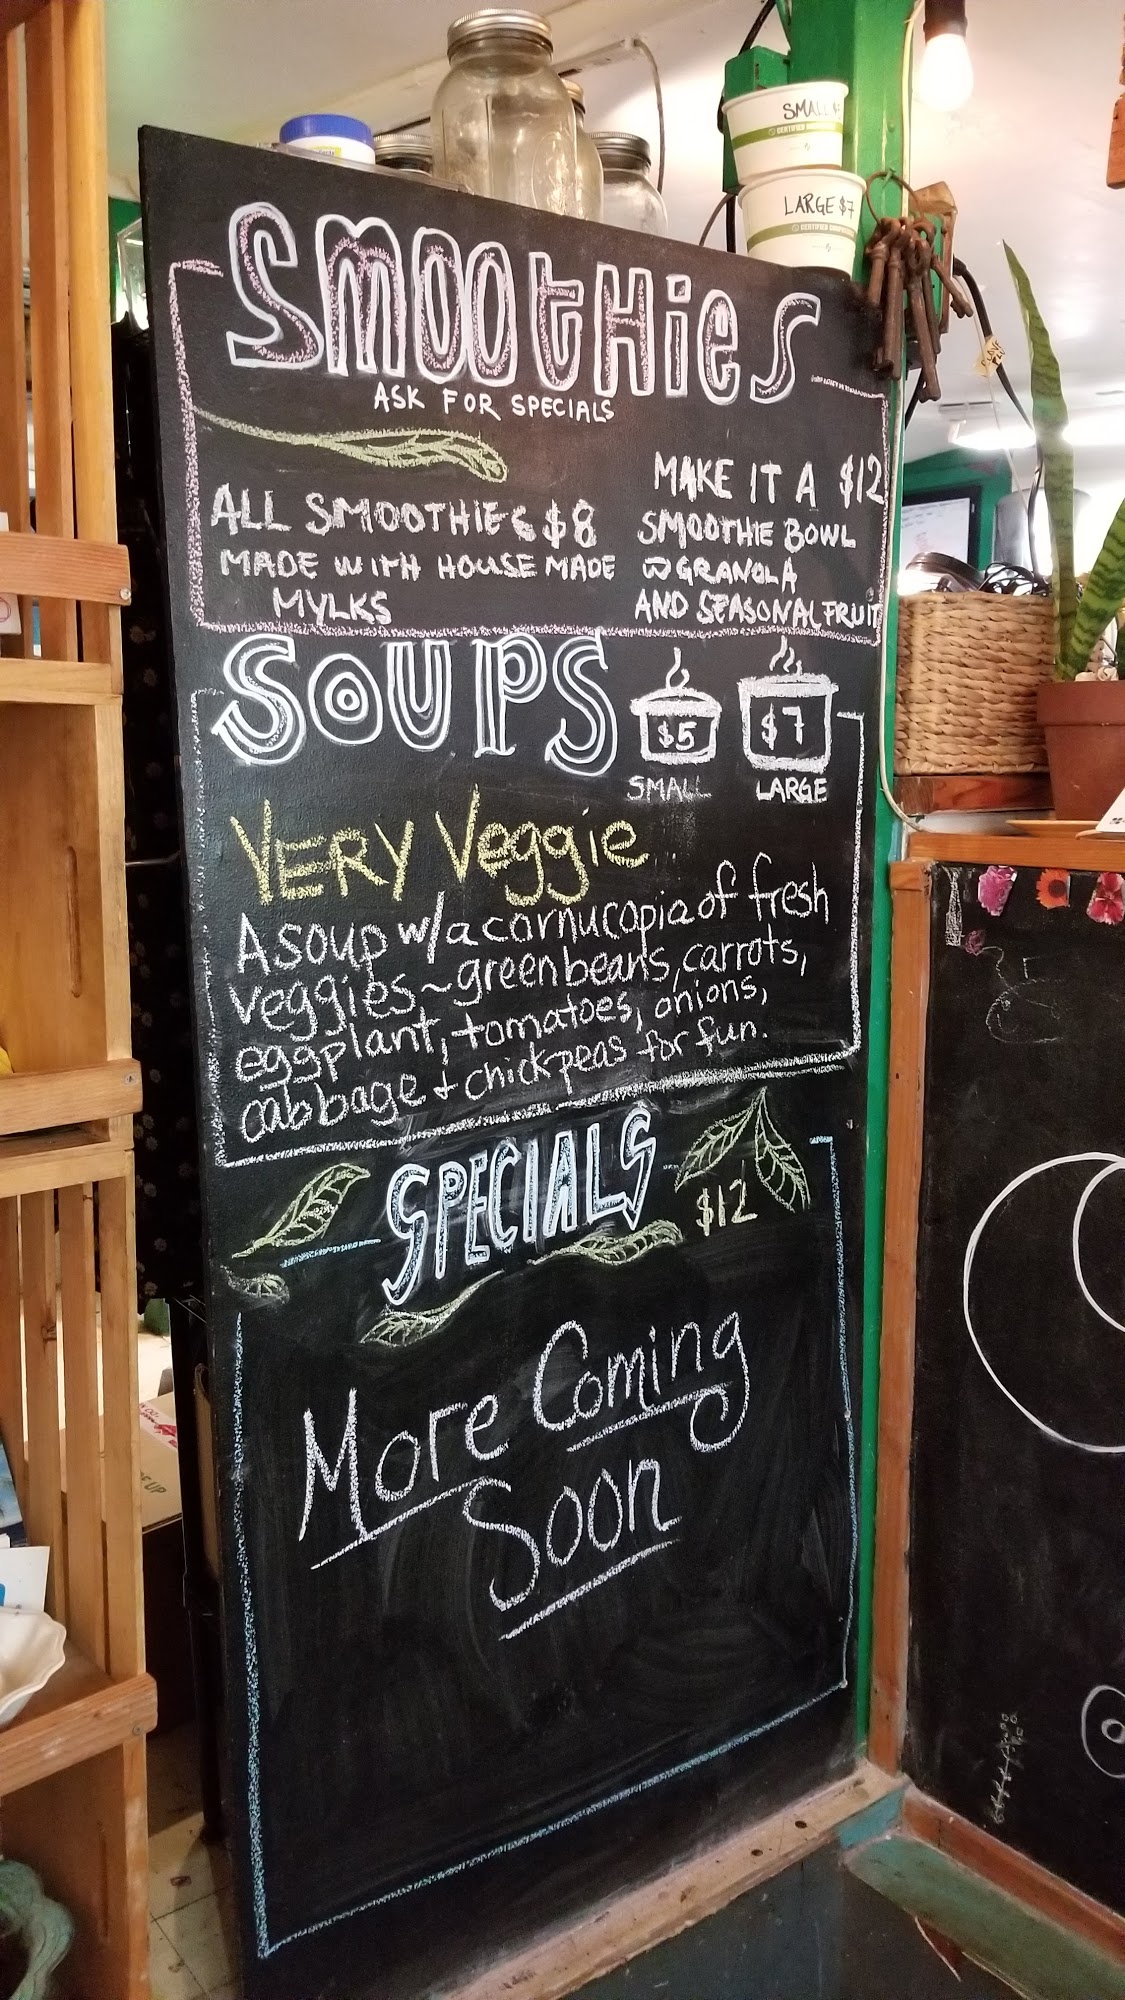 SMALL $5
LARGE $7
SMOOTHIES
ASK FOR SPECIALS
ALL SMOOTHIES $8
MADE WITH HOUSE MADE
MYLKS
MAKE IT A $12
SMOOTHIE BOWL
W GRANOLA
AND SEASONAL FRUIT
SOUPS
$5
SMALL
$7
LARGE
VERY Veggie
A soup w/ a cornucopia of fresh
veggies ~ green beans, carrots,
eggplant, tomatoes, onions,
cabbage + chickpeas for fun.
SPECIALS
$12
More Coming
Soon